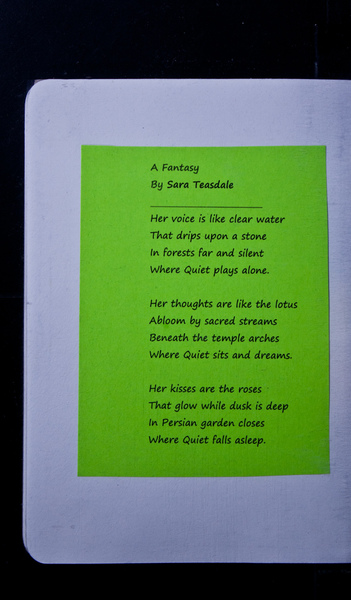 A Fantasy
By Sara Teasdale
Her voice is like clear water
That drips upon a stone
In forests far and silent
Where Quiet plays alone.
Her thoughts are like the lotus
Abloom by sacred streams
Beneath the temple arches
Where Quiet sits and dreams.
Her kisses are the roses
That glow while dusk is deep
In Persian garden closes
Where Quiet falls asleep.